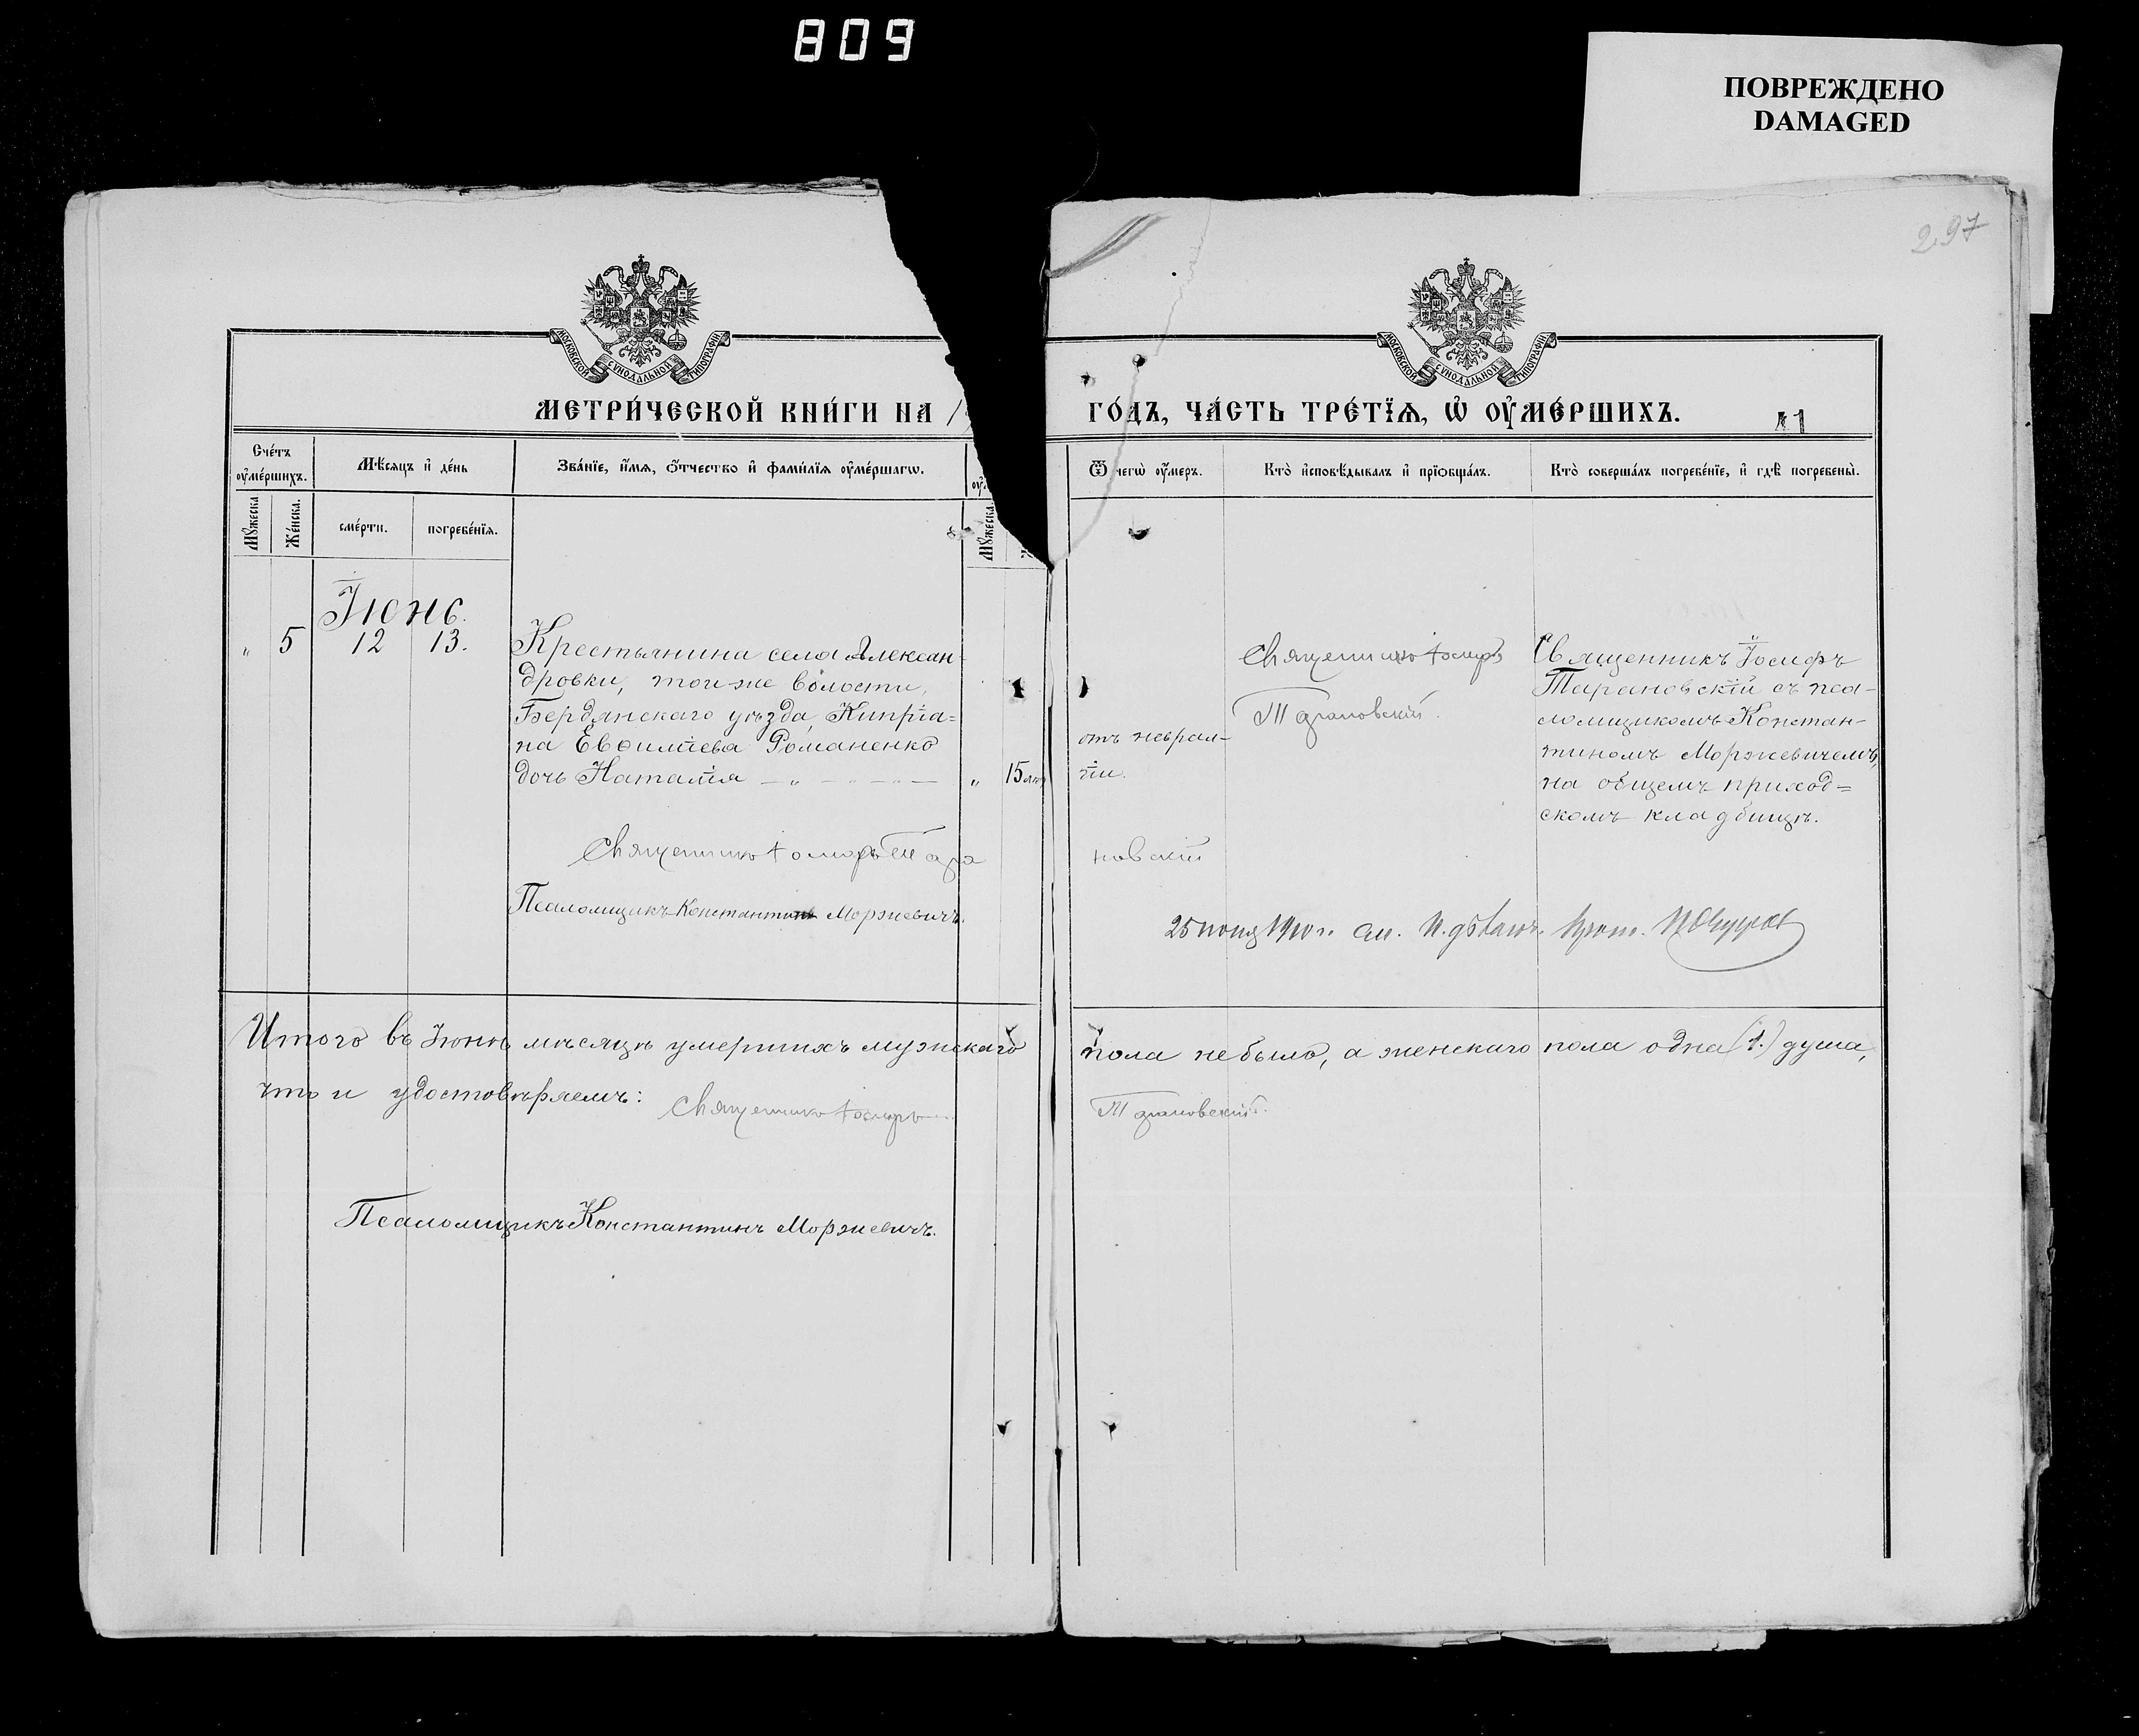 809
ПОВРЕЖДЕНО
DAMAGED
297
МОСКОВСКОЙ СѴНОДАЛЬНОЙ ТИПОГРАФІИ
МОСКОВСКОЙ СѴНОДАЛЬНОЙ ТИПОГРАФІИ
МЕТРИ́ЧЕСКОЙ КНИ́ГИ НА 1
ГО́ДЪ, ЧА́СТЬ ТРЕ́ТЇѦ, Ѡ҆ ОУ҆МЕ́РШИХЪ.
Сче́тъ оу҆ме́ршихъ.
Мѣ́сяцъ и҆ де́нь
Зва́нїе, и҆́мя, ѻ҆́тчество и҆ фами́лїя оу҆ме́ршагѡ.
Ѿ чегѡ̀ оу҆́меръ.
Кто̀ и҆сповѣ́дывалъ и҆ прїѡбща́лъ.
Кто̀ соверша́лъ погребе́нїе, и҆ гдѣ̀ погребены̀.
Мꙋ́жеска
Же́нска.
сме́рти.
погребе́нїя.
Мꙋ́жеска.
Іюнь.
" 5 12 13.
Крестьянина села Алексан-
дровки, той-же волости,
Бердянскаго уѣзда, Кипріа=
на Евѳиміева Романенко
дочь Наталія — „ — „ —
„ 15
отъ неврал-
гіи.
Священникъ Іосифъ
Тарановскій.
Священникъ Іосифъ
Тарановскій съ пса-
ломщикомъ Констан-
тиномъ Моржевичемъ,
на общемъ приход=
скомъ кладбищѣ.
Священникъ Іосифъ Тара
новскій
Псаломщикъ Константинъ Моржевичъ.
25 іюня 1910 г.
Итого въ Іюнѣ мѣсяцѣ умершихъ мужскаго пола не было, а женскаго пола одна (1.) душа,
что и удостовѣряемъ: Священникъ Іосифъ Тарановскій.
Псаломщикъ Константинъ Моржевичъ.